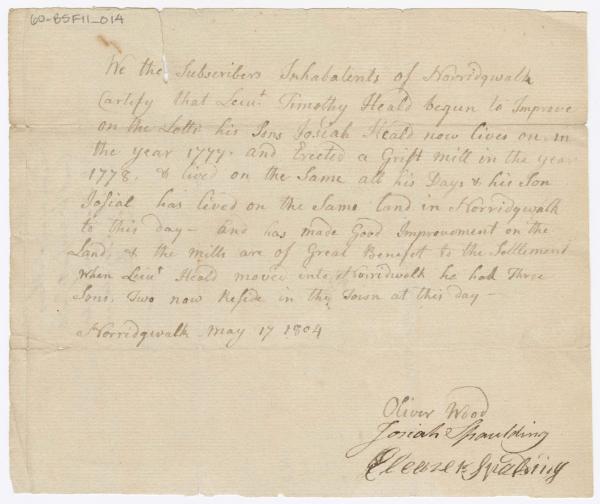 60-BSF11-014
We the Subscribers Inhabatents of Norridgwalk
Cartify that Lieut. Timothy Heald begun to Improve
on the Lotts his Sons Josiah Heald now lives on in
the year 1777. and Erected a Grist mill in the year
1778. & lived on the Same all his Days & his Son
Josial has lived on the Same land in Norridgwalk
to this day - and has made Good Improvement on the
Land, & the mills are of Great Benefit to the Settlement
when Lieut Heald moved into Norridwolk he had Three
Sons, Two now Reside in the Town at this day -
Norridgwalk May 17 1804
Oliver Wood
Josiah Spaulding
Eleazer Spalding